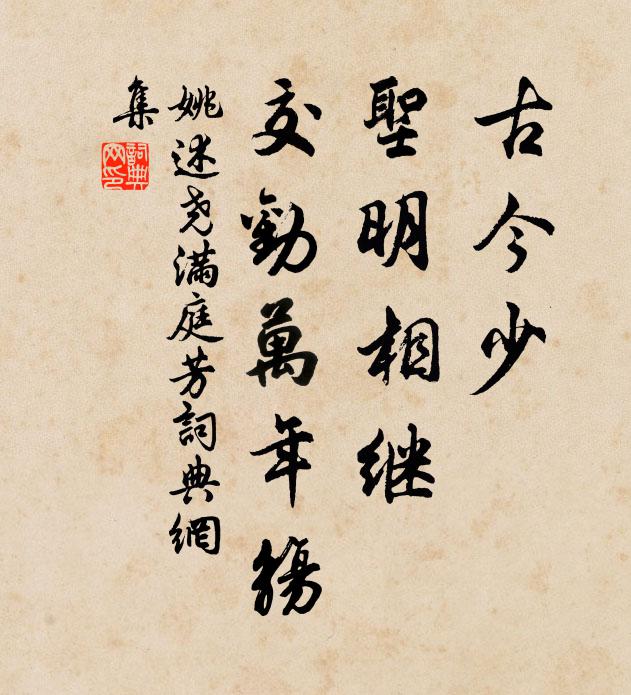 古今少
聖明相继
交勸萬年觴
姚述尧滿庭芳詞典網
集
詞典
网印